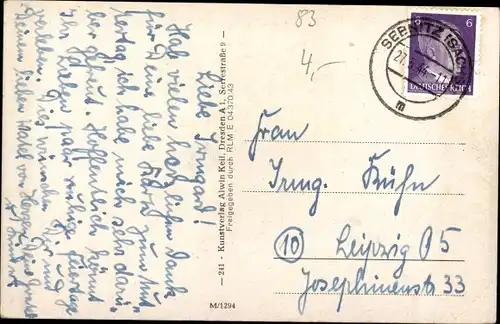 83
4,-
SEBNITZ (SACHS)
6
DEUTSCHES REICH
m
Liebe Irmgard!
Hab vielen herzlichen Dank
für Deine liebe Karte zum Mut-
tertag, ich habe mich sehr darü-
ber gefreut. Hoffentlich könnt
Ihr Lieben paar ruhige Feiertage
verleben. Dies wünschen Dir und
Deinem lieben von Herzen
— 241 - Kunstverlag Alwin Keil, Dresden A 1, Serrestraße 9 —
Freigegeben durch RLM E 04370/43
M/1294
Frau
Irmg. Kühn
(10) Leipzig O 5
Josephinenstr. 33